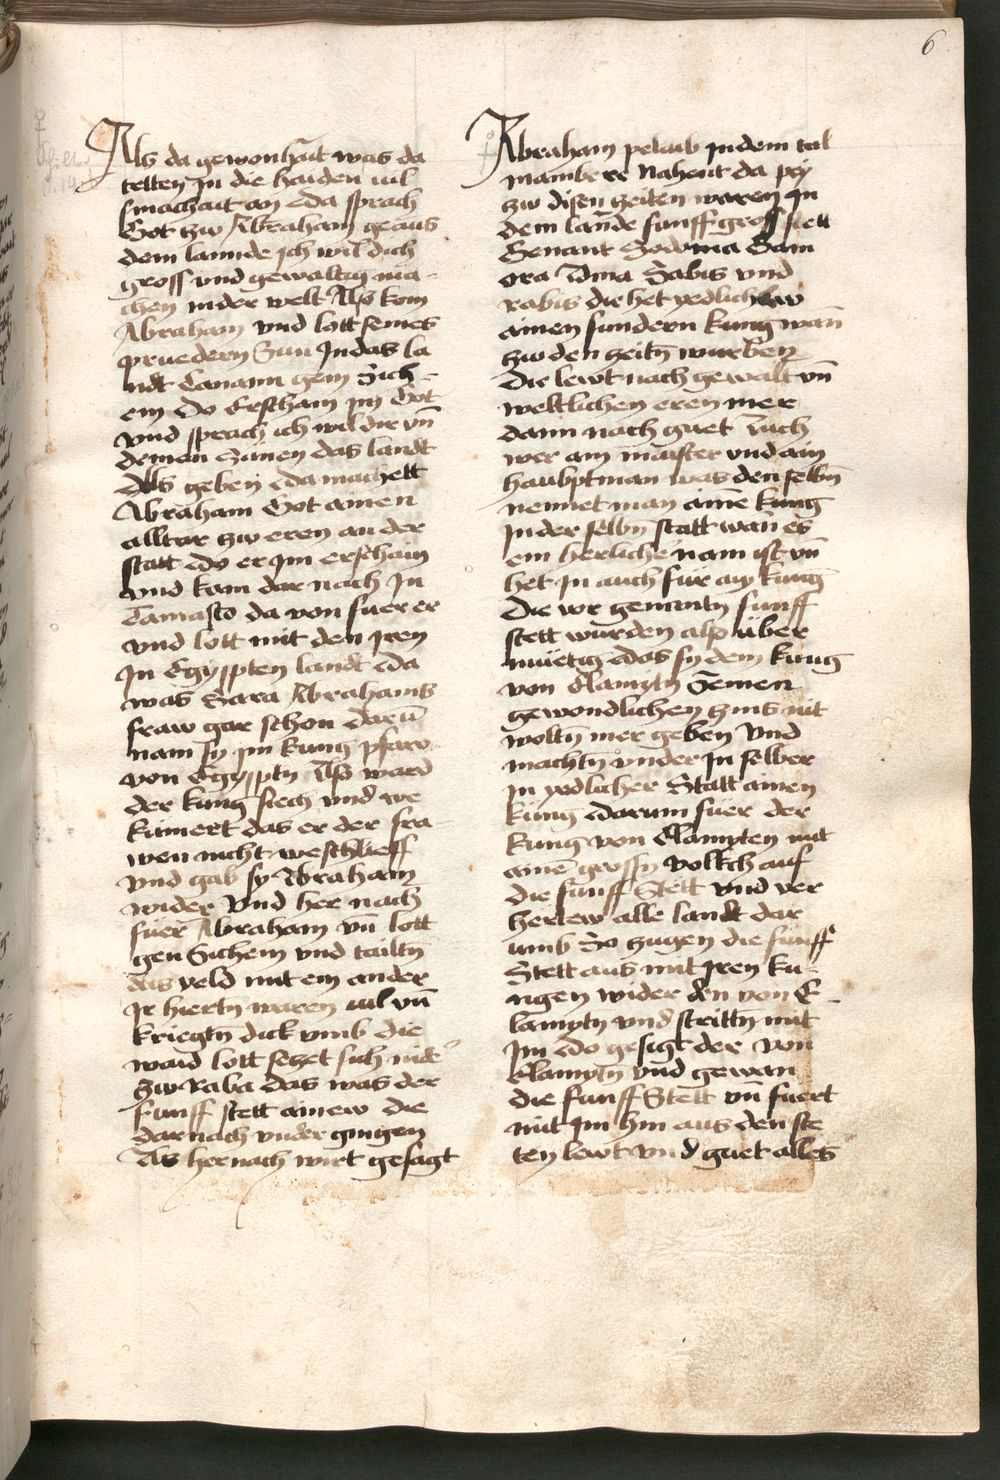 6
Als da gewonhait was da
tetten Jn die haiden uil
smachait an Eda sprach
Got zw Abraham ge aus
dem lannde ich wil dich
gross vnd gewaltig ma-
chen in der welt Also kom
Abraham vnd lott seines
pruedern Sun Jn das la
ndt Canann gem Sich-
em Do Erscham im Got
vnd sprach ich wil dir vn̄
deinen Sünen das landt
Als geben Eda machett
Abraham Got ainen
alltar zw eren an der
statt do er Jm erschain
vnd kam dar nach Jn
Damasco da von fuer er
vnd lott mit den Jren
Jn Egyppten landt Eda
was Sara Abrahams
fraw gar schon darū
nam sy im kung pharo
von Egypptn Also ward
der kung siech vnd we
kümert das er der fra-
wen nicht weschlieff
vnd gab sy Abraham
wider Vnd her nach
füer Abraham vn̄ lott
gen Sichem vnd tailtn
das veld mit em ander
Jr hiertn waren uil vn̄
kriegtn̄ dick vmb die
waid lott seczet sich nid
Zw Raba das was der
funff stett ainew die
darnach vnder gingen
Als hernach wirt gesagt
Abraham pelaib in dem tal
mambere Nahent da pey
zw disen zeiten waren Jn
dem lande funff gross stett
Genant Sodoma Gam
ora Adma Sabis vnd
rabis die het yedlichew
ainen sundern kung wan̄
zw den zeitn̄ wurben
Die lewt nach gewalt vn̄
weltlichen eren mer
dann nach guet Auch
wer ain maister vnd ain
haubptman was den selbn̄
nennet man ainē kung
Jn der selbn statt wan̄ es
ein herliche nam ist vn̄
het Jn auch für ain kung
Die vor genantn funff
stett wurden also über
müetig Edas sy dem kung
von Elamptn Seinen
gewondlichen zins nit
woltn̄ mer geben Vnd
machtn̄ vnder Jn selber
in yedlicher Statt ainen
kung Edarum fuer der
kung von Elampten mit
ainē grossn volkch auf
die funff Stett Vnd ver
hertew alle landt dar
umb So zugen die funff
Stett aus mit Jren ku-
ngen wider den von E-
lamptn vnd strittn̄ mit
Jm Edo gesigt der von
Elamptn̄ vnd gewan
die funff Stett vn̄ fuert
mit Jm hin aus den ste
ten lewt vnd guet alles